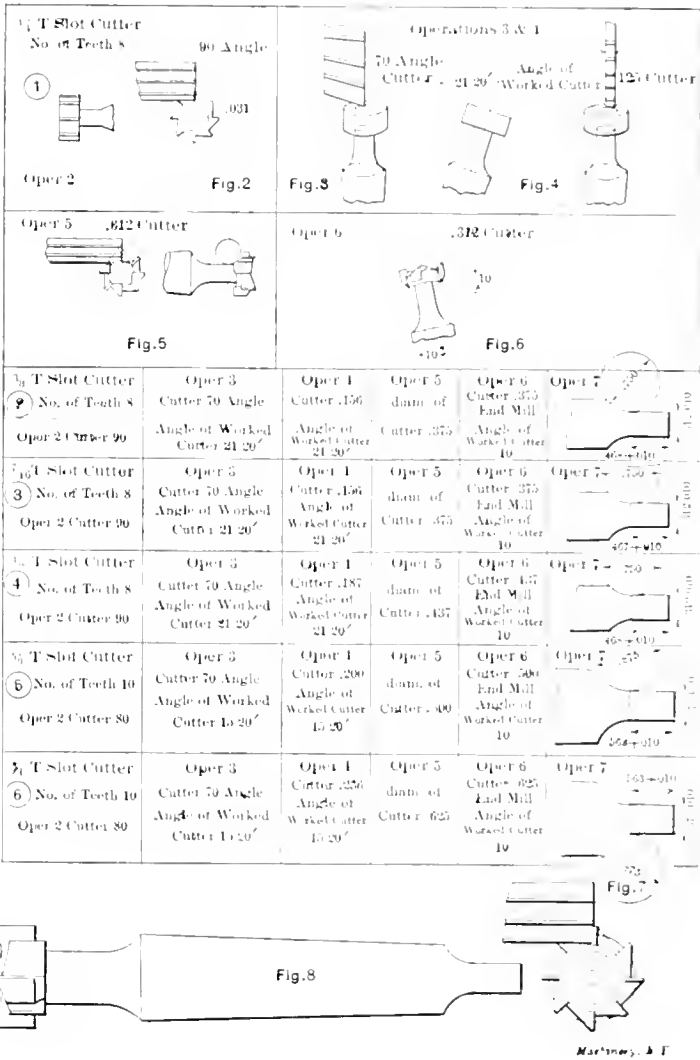 T Slot Cutter
No. of Teeth 8
90 Angle
1
.031
Oper 2
Fig.2
Operations 3 & 4
70 Angle
Cutter
21 20′
Angle of
Worked Cutter
.125 Cutter
Fig.3
Fig.4
Oper 5 .612 Cutter
Fig.5
Oper 6 .312 Cutter
10
10
Fig.6
T Slot Cutter
No. of Teeth 8
Oper 2 Cutter 90
Oper 3
Cutter 70 Angle
Angle of Worked
Cutter 21 20′
Oper 4
Cutter .156
Angle of
Worked Cutter
21 20′
Oper 5
diam of
Cutter .375
Oper 6
Cutter .375
End Mill
Angle of
Worked Cutter
10
Oper 7
T Slot Cutter
3 No. of Teeth 8
Oper 2 Cutter 90
Oper 3
Cutter 70 Angle
Angle of Worked
Cutter 21 20′
Oper 4
Cutter .156
Angle of
Worked Cutter
21 20′
Oper 5
diam of
Cutter .375
Oper 6
Cutter .375
End Mill
Angle of
Worked Cutter
10
Oper 7
.750
T Slot Cutter
4 No. of Teeth 8
Oper 2 Cutter 90
Oper 3
Cutter 70 Angle
Angle of Worked
Cutter 21 20′
Oper 4
Cutter .187
Angle of
Worked Cutter
21 20′
Oper 5
diam of
Cutter .437
Oper 6
Cutter .437
End Mill
Angle of
Worked Cutter
10
Oper 7
T Slot Cutter
5 No. of Teeth 10
Oper 2 Cutter 80
Oper 3
Cutter 70 Angle
Angle of Worked
Cutter 15 20′
Oper 4
Cutter .200
Angle of
Worked Cutter
15 20′
Oper 5
diam of
Cutter .500
Oper 6
Cutter .500
End Mill
Angle of
Worked Cutter
10
Oper 7
T Slot Cutter
6 No. of Teeth 10
Oper 2 Cutter 80
Oper 3
Cutter 70 Angle
Angle of Worked
Cutter 15 20′
Oper 4
Cutter .256
Angle of
Worked Cutter
15 20′
Oper 5
diam of
Cutter .625
Oper 6
Cutter .625
End Mill
Angle of
Worked Cutter
10
Oper 7
Fig.7
Fig.8
Machinery